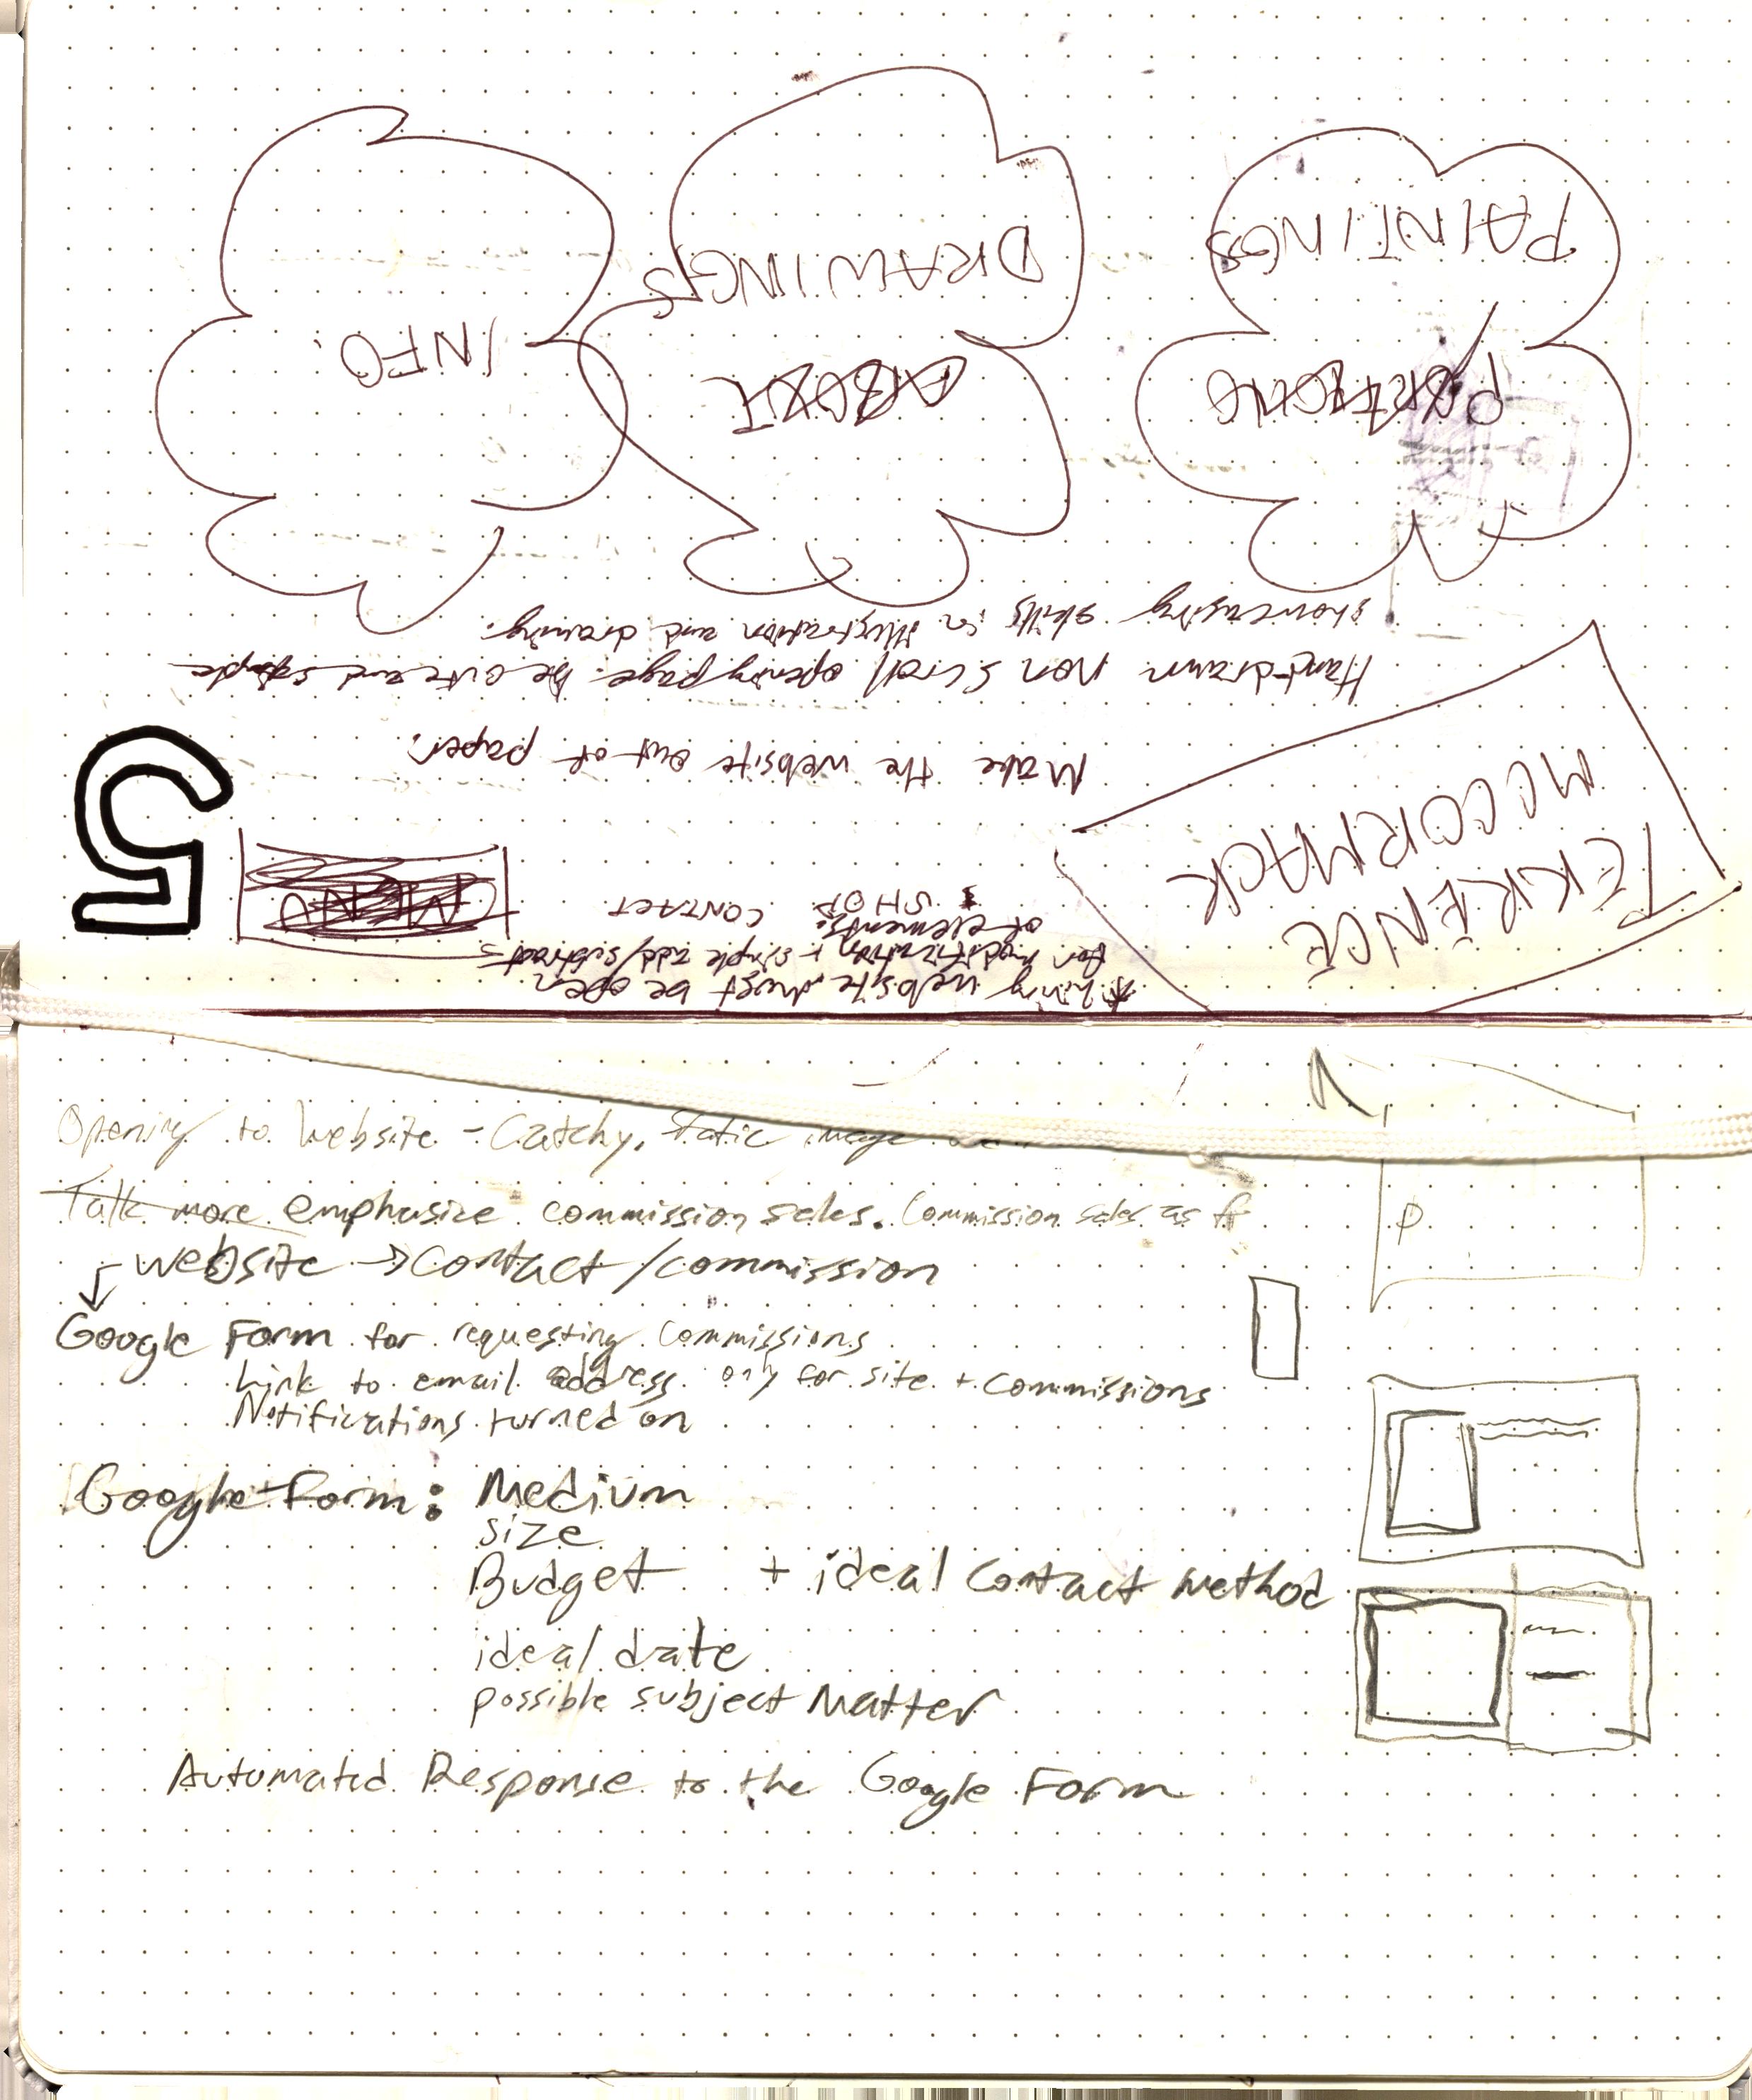 * living website. Must be open
for modification + simple add/subtract
of elements.
TERRENCE
MCCORMACK
SHOP
CONTACT
MENU
5
Make the website out of paper.
Hand-drawn non scroll opening page. be cute and simple
showcasing skills in illustration and drawing.
PORTFOLIO
PAINTINGS
ABOUT
DRAWINGS
INFO.
Opening to Website - Catchy, static image
Talk more emphasize commission sales. Commission sales as
- website → contact/commission
Google Form for requesting commissions
Link to email address only for site + commissions
Notifications turned on
Google Form: Medium
size
Budget + ideal contact method
ideal date
possible subject matter
Automated Response to the Google Form
P